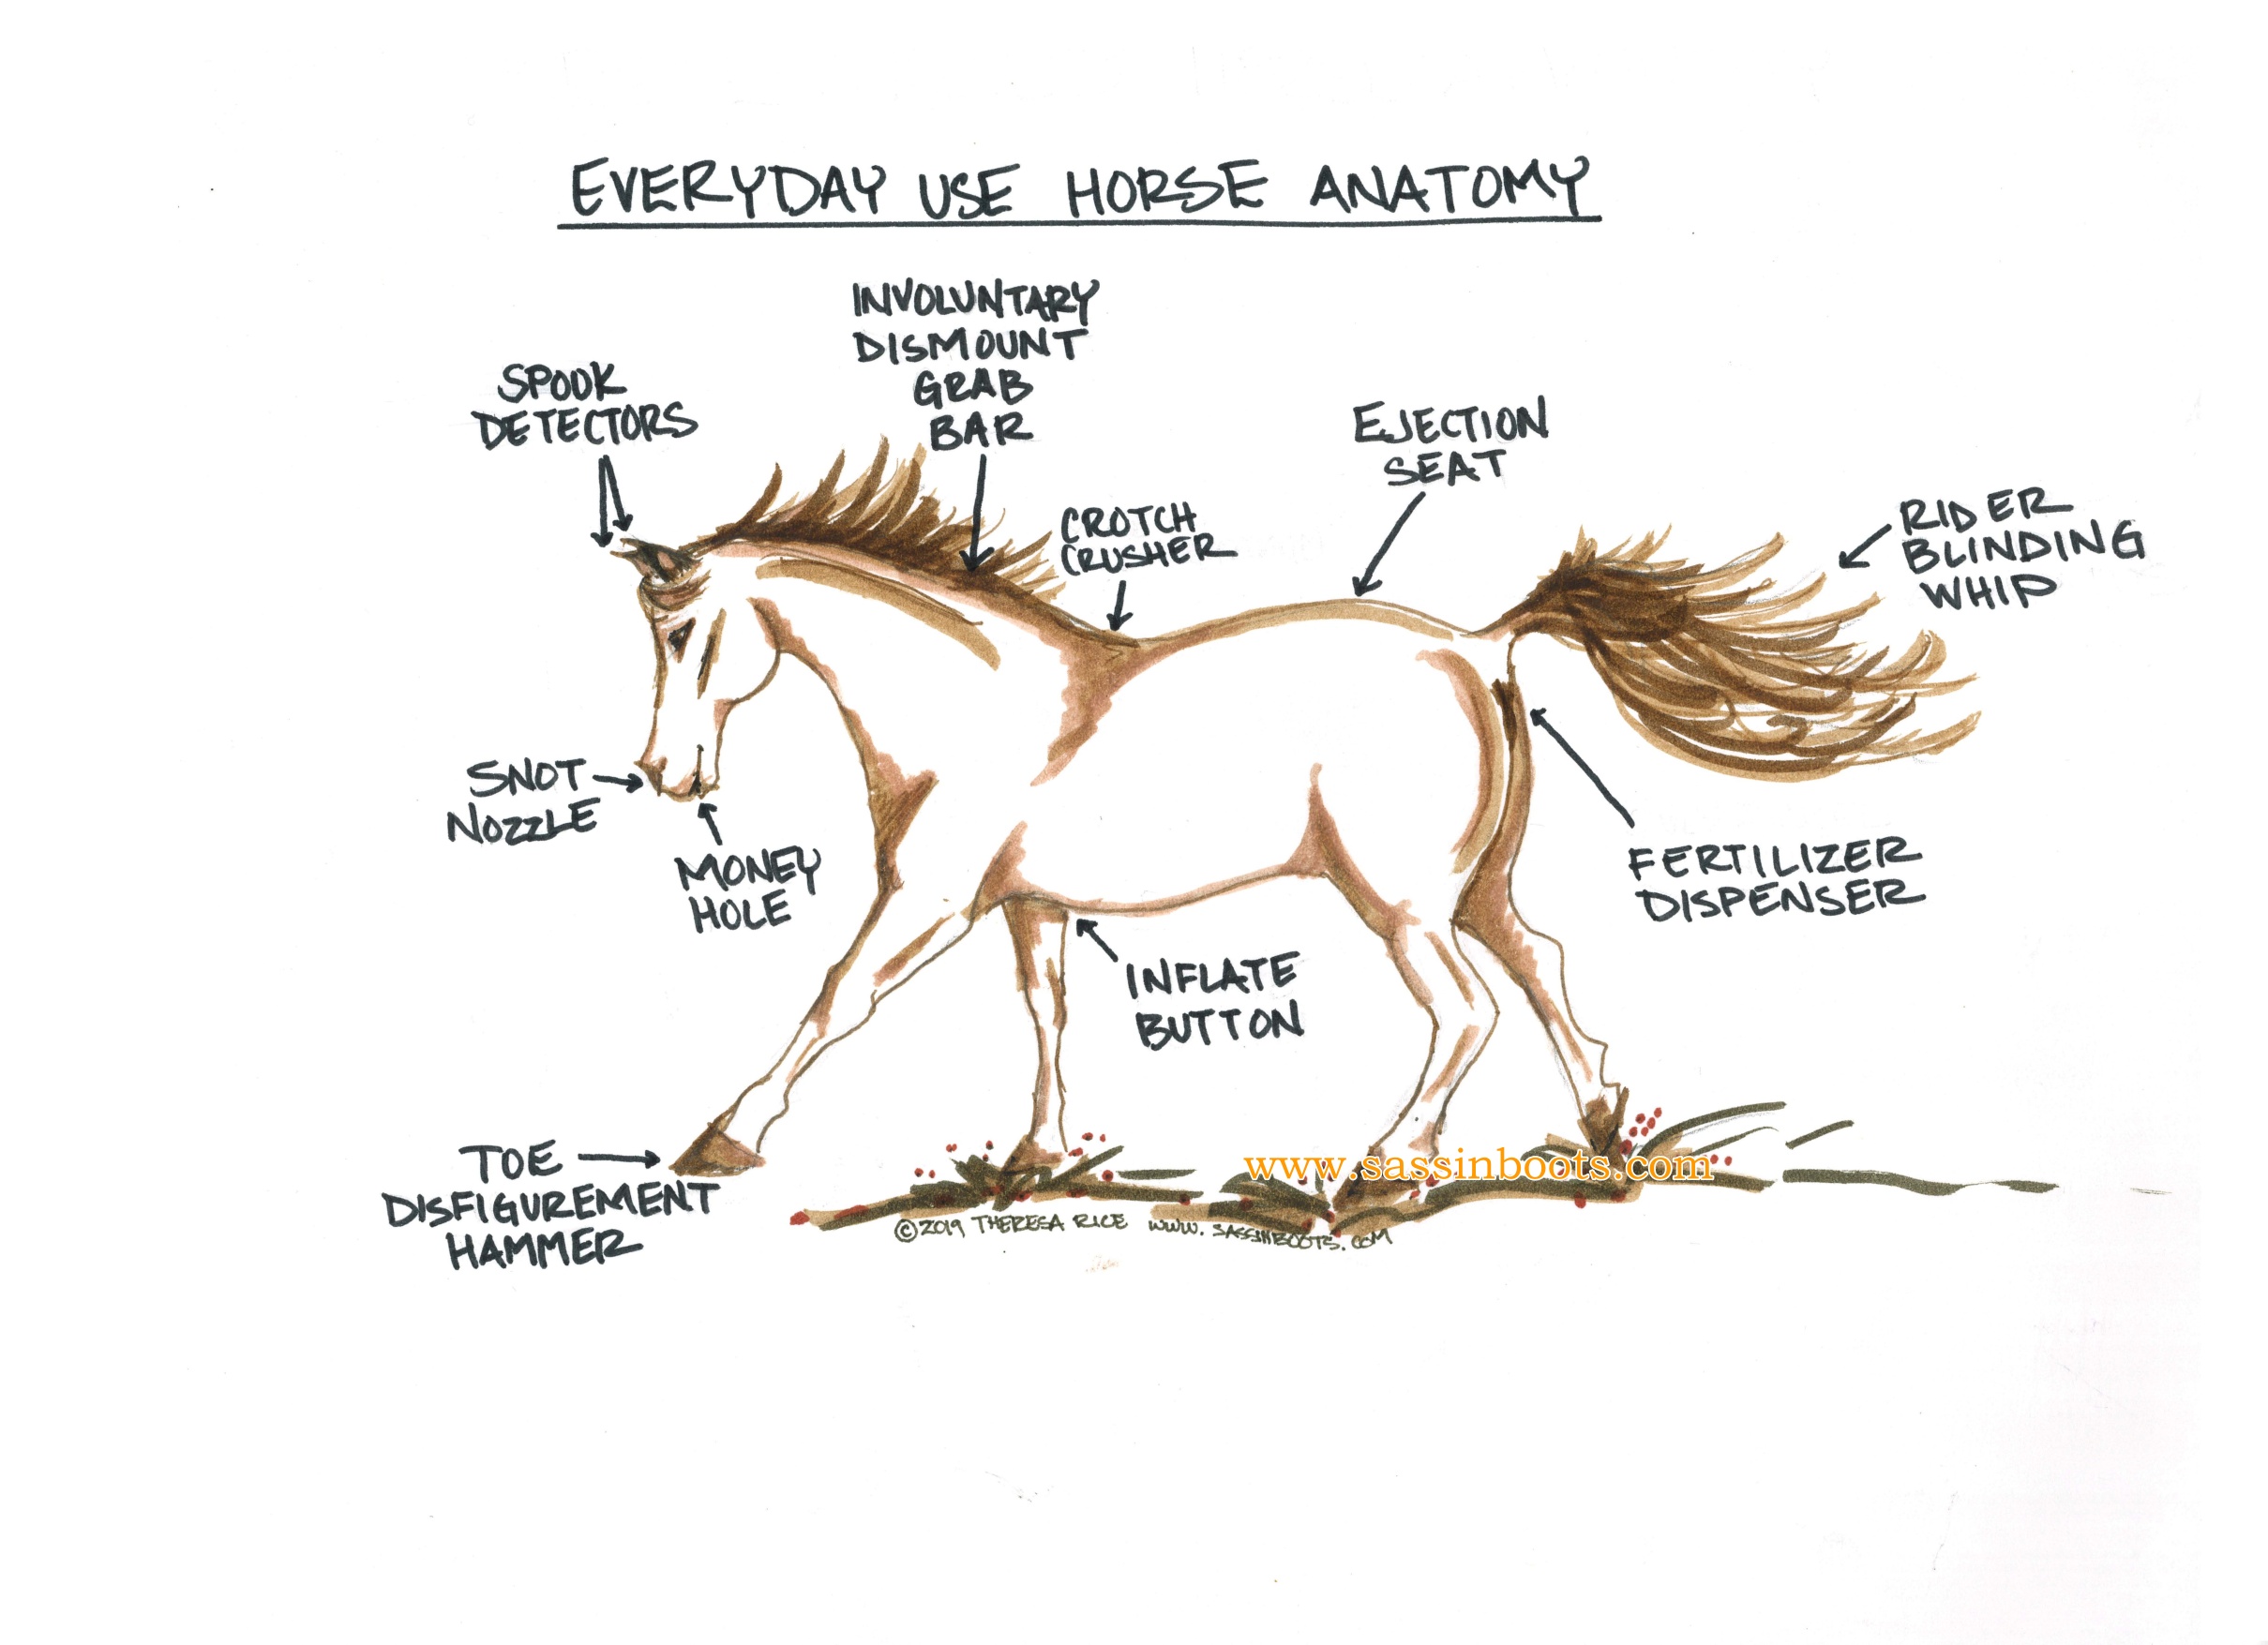 EVERYDAY USE HORSE ANATOMY
INVOLUNTARY
DISMOUNT
GRAB
BAR
SPOOK
DETECTORS
EJECTION
SEAT
CROTCH
CRUSHER
RIDER
BLINDING
WHIP
SNOT
NOZZLE
MONEY
HOLE
FERTILIZER
DISPENSER
INFLATE
BUTTON
TOE
DISFIGUREMENT
HAMMER
www.sassinboots.com
©2019 THERESA RICE www.SASSINBOOTS.COM